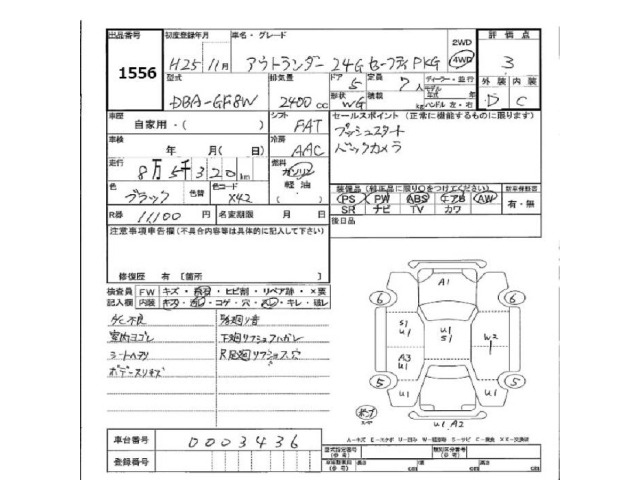 出品番号 初度登録年月 車名・グレード 2WD 評価点
1556 H25 11月 アウトランダー 24G セーフティPKG 4WD 3
型式 排気量 ドア 5 定員 7人 ディーラー・並行 外装 内装
DBA-GF8W 2400cc 形状 WG 積載 kg 年式 年 ハンドル 左・右 D C
車歴 自家用・( ) シフト FAT セールスポイント (正常に機能するものに限ります)
車検 年 月(日) 冷房 AAC プッシュスタート
走行 8万5千320km 燃料 ガソリン 軽油 ( ) バックカメラ
色 ブラック 色替 色コード X42 装備品(純正品に限り○をつけてください) 新車保証書
PS PW ABS エアB AW 有・無
R券 11,100円 名変期限 月 日 SR ナビ TV カワ
注意事項申告欄(不具合内容等は具体的に記入して下さい) 後日品
修復歴 有 [箇所 ]
検査員 FW キズ・飛石・ヒビ割・リペア跡・×要
記入欄 内装 キズ・汚レ・コゲ・穴・スレ・キレ・破レ
A/C不良
室内ヨゴレ 下廻リサビ
シートヘタリ R足廻リ
ボデースリキズ
A1
6 6
S1 U1 U1 S1 W2
A3 U1 U1
5 5
U1
U1 A2
車台番号 0003436
A-キズ E-エクボ U-凹み W-補修跡 S-サビ C-腐食 XX-交換済
登録番号 型式指定番号(参考) 類別区分番号(参考)
長さ cm 幅 cm 高さ cm